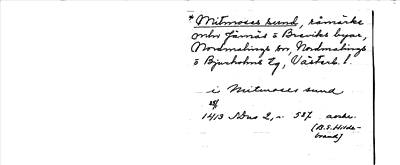 * Mitmoses sund, råmärke
mellan Järnäs o Breviks byar,
Nordmalings sn, Nordmalings
o Bjurholms tg, Västerb. l.
i Mitmoses sund
1413 Nus 2, 527 avskr.
(B.E. Hilde-
brand)